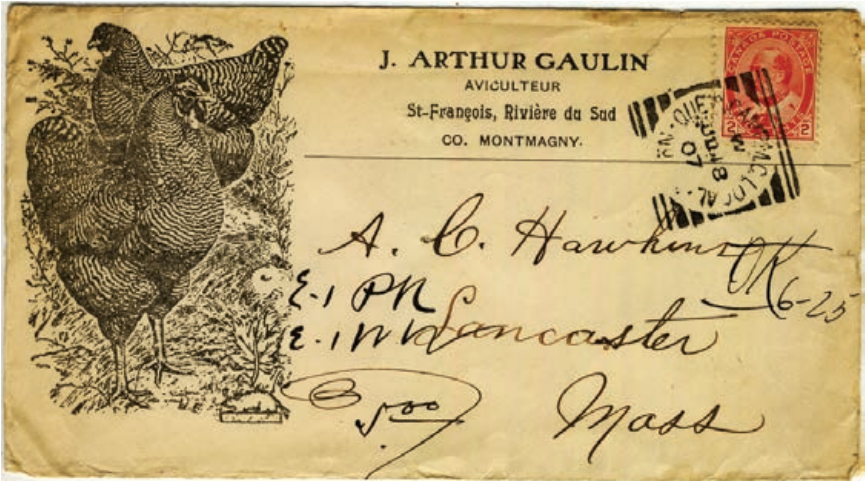 J. ARTHUR GAULIN
AVICULTEUR
St-François, Rivière du Sud
CO. MONTMAGNY.
CANADA POSTAGE
2 2
LOCAL
07
A. C. Hawkins
OK
6-25
E-1 PR
E-1 W
Lancaster
5.00
Mass